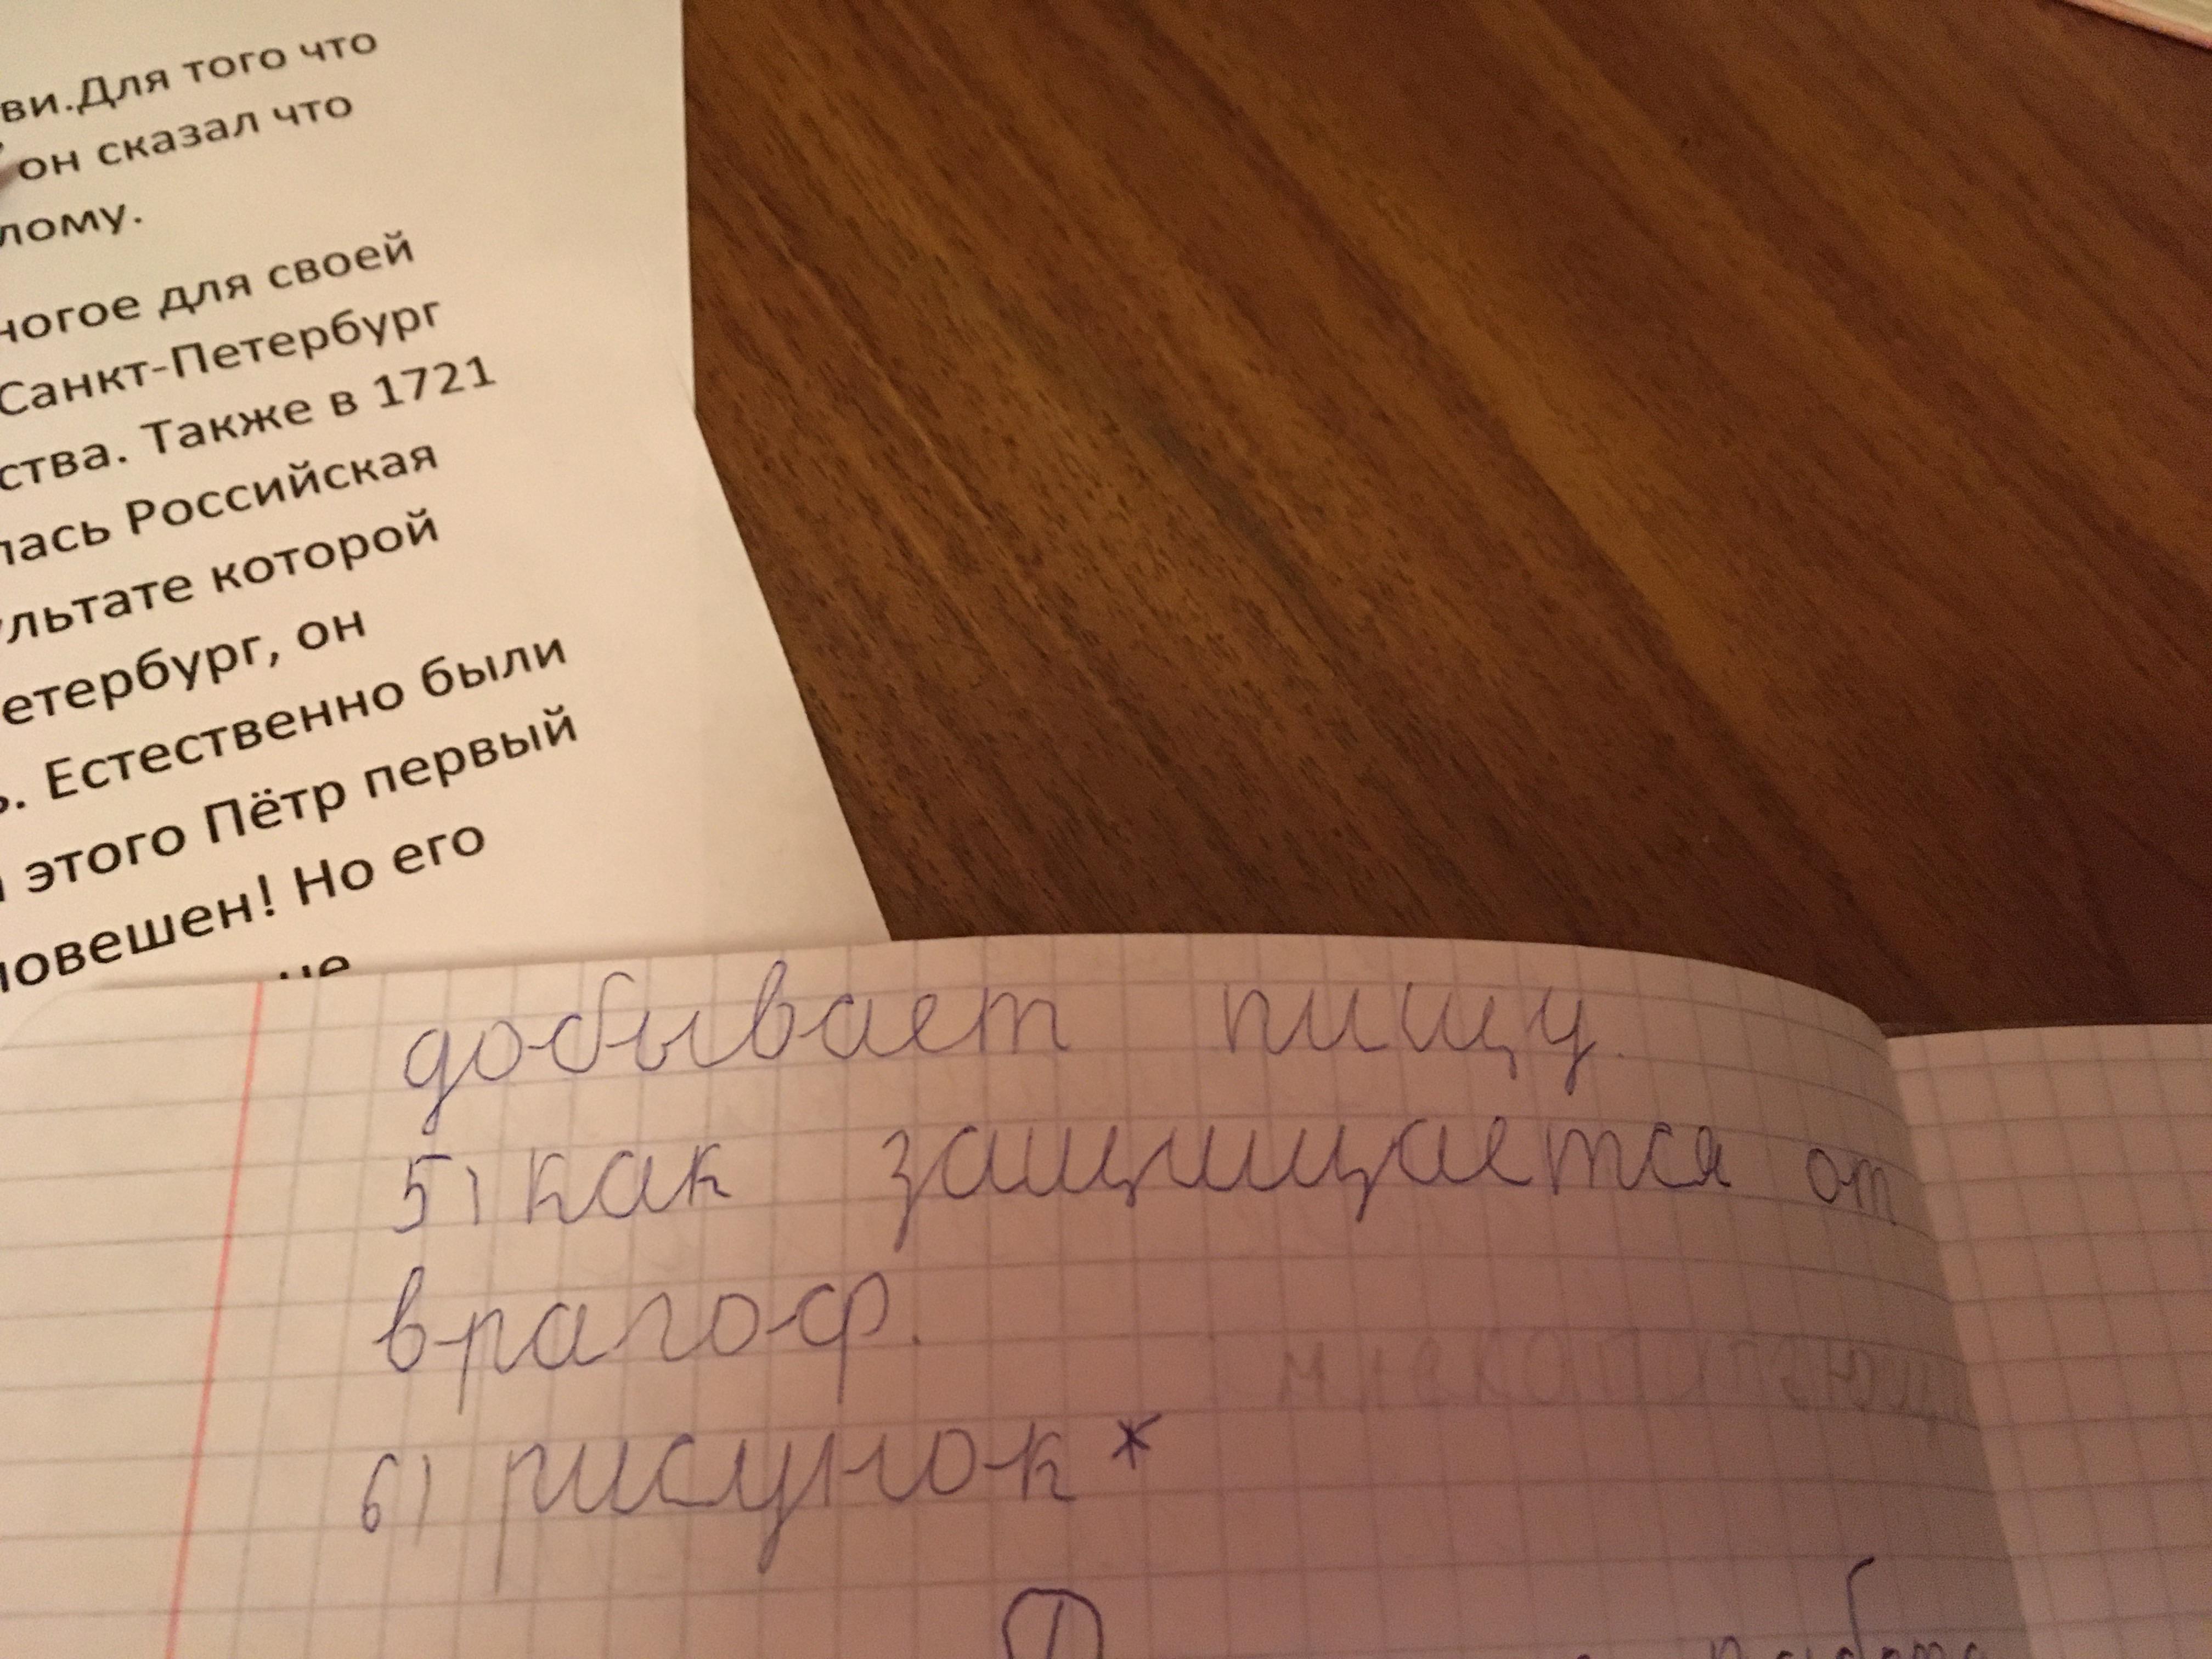 ви.Для того что
он сказал что
лому.
ногое для своей
Санкт-Петербург
ства. Также в 1721
лась Российская
ультате которой
етербург, он
ь. Естественно были
этого Пётр первый
повешен! Но его
не
добывает пищу.
5) как защищается от
врагоф.
6) рисунок*
работа